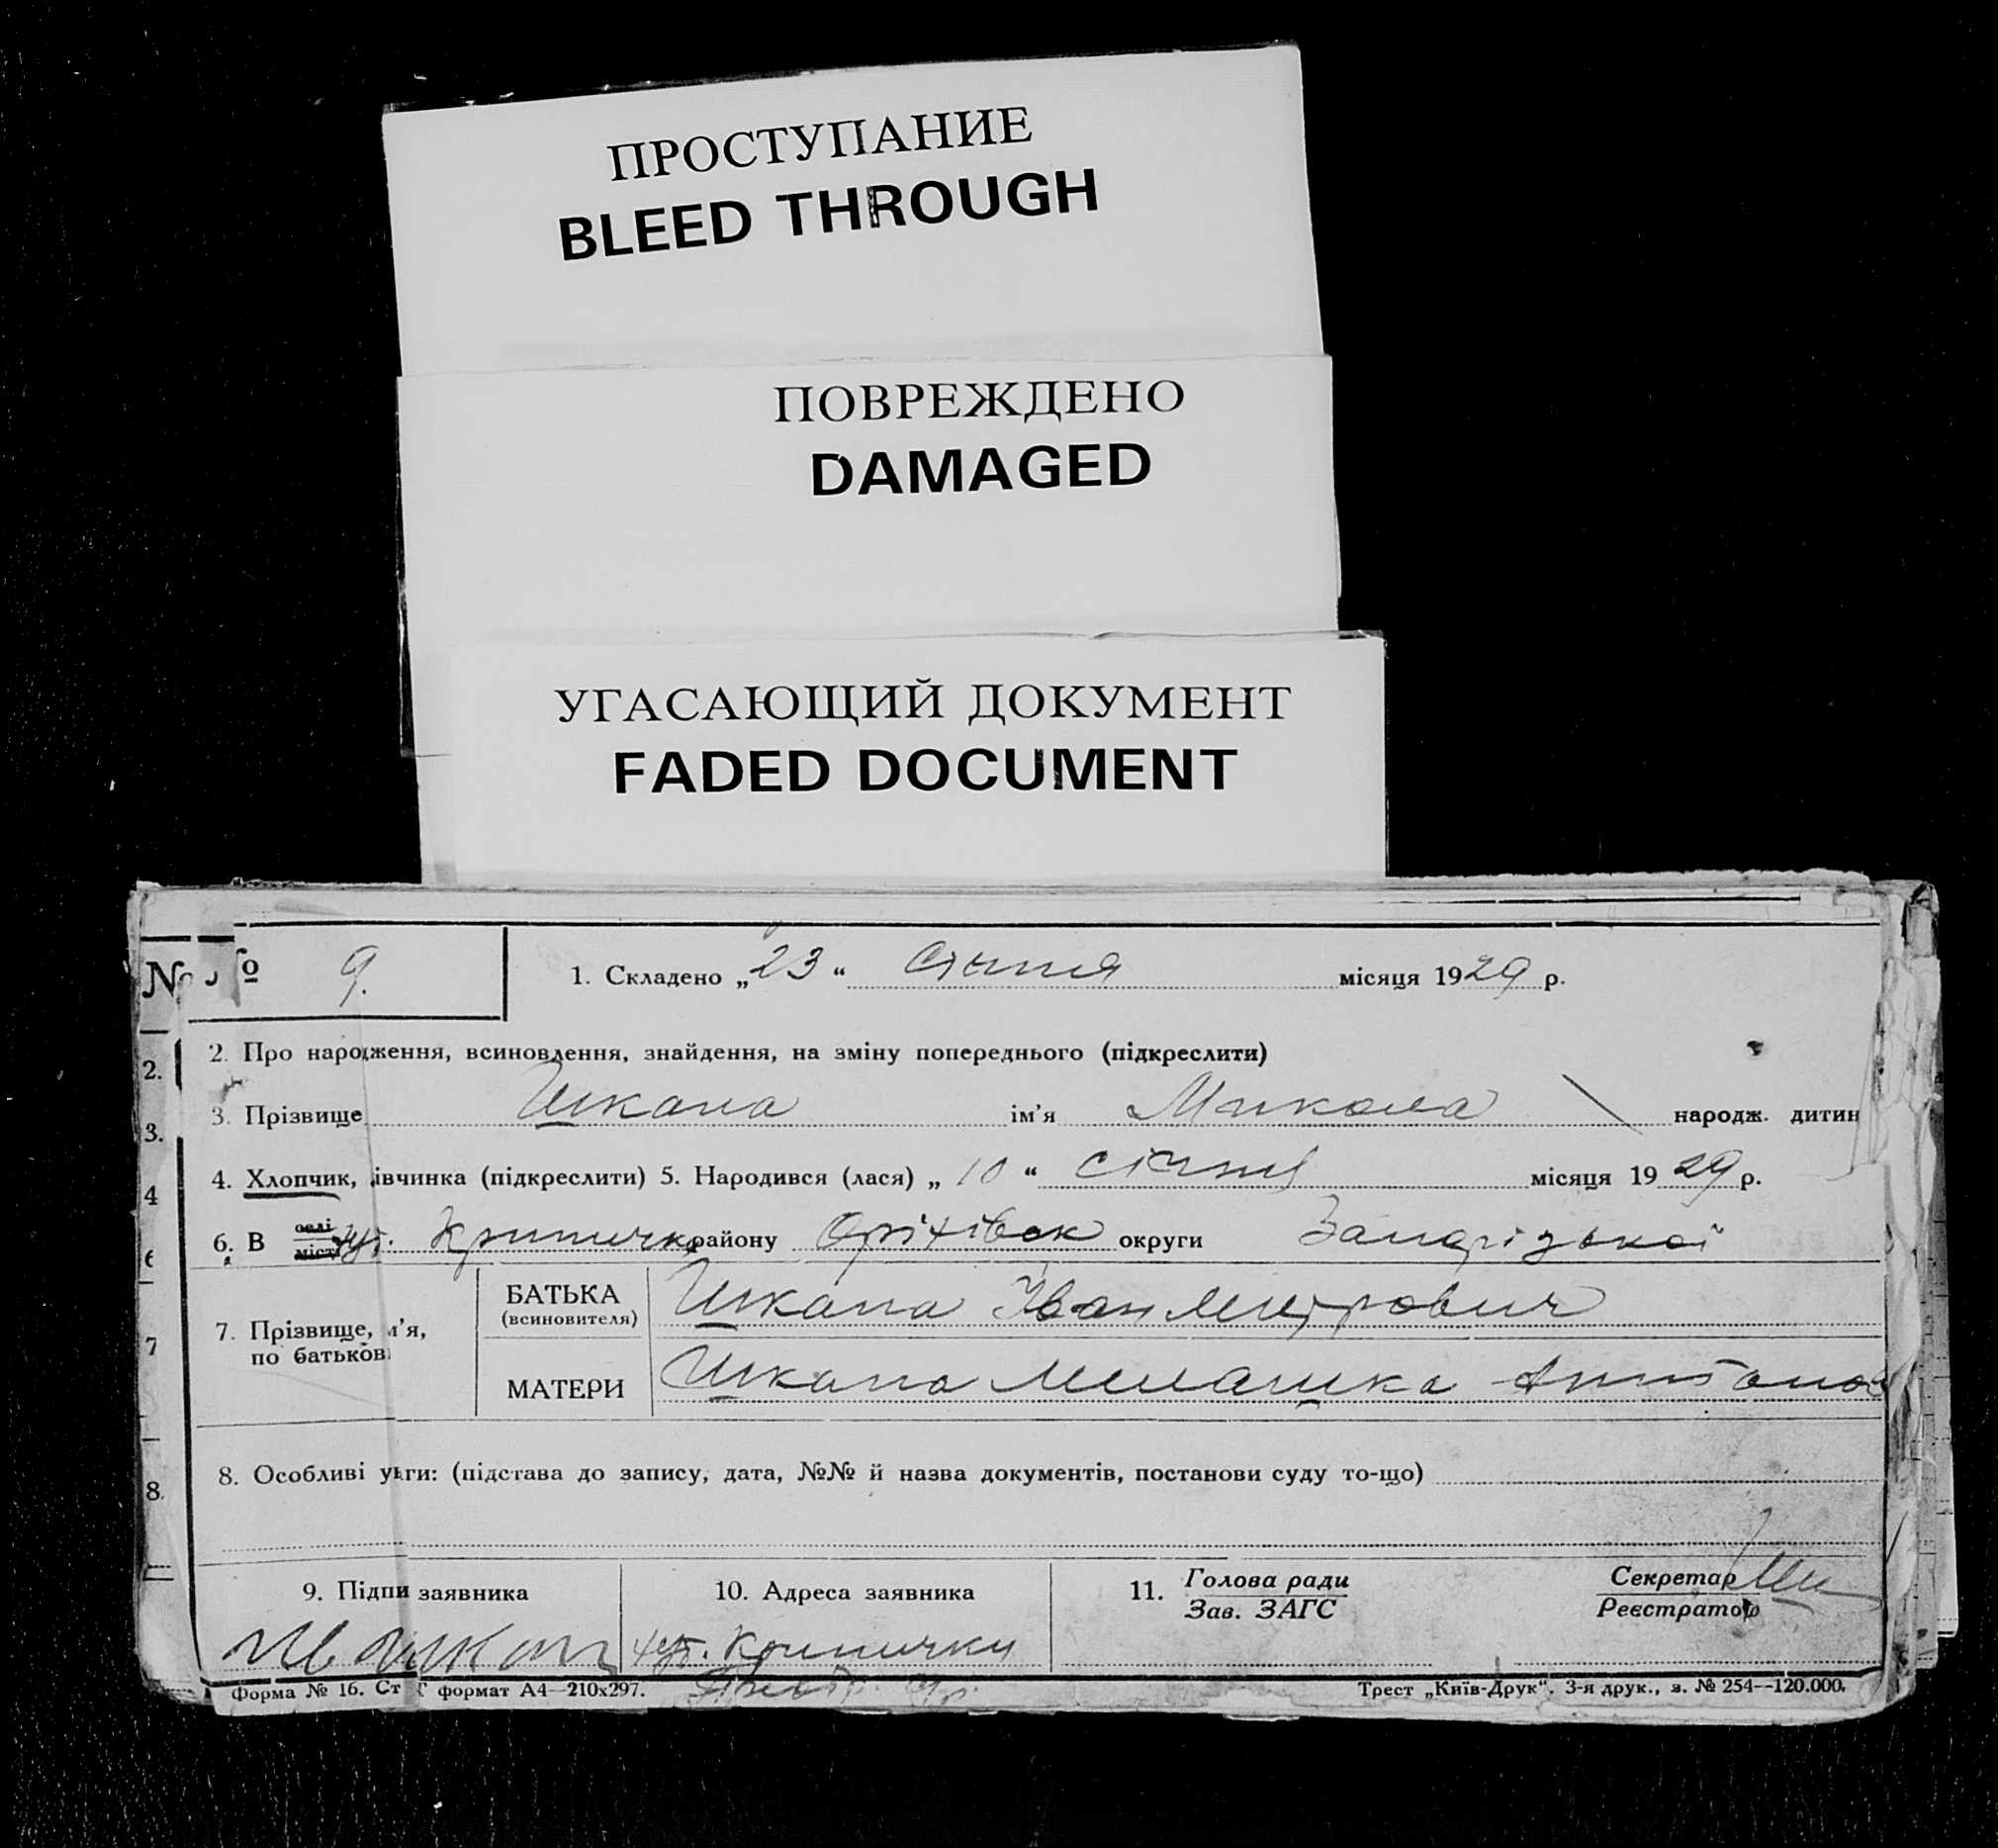 ПРОСТУПАНИЕ
BLEED THROUGH
ПОВРЕЖДЕНО
DAMAGED
УГАСАЮЩИЙ ДОКУМЕНТ
FADED DOCUMENT
№ 9. 1. Складено „23“ Січня місяця 1929 р.
2. Про народження, всиновлення, знайдення, на зміну попереднього (підкреслити)
3. Прізвище Шкапа ім'я Микола народж. дитин
4. Хлопчик, івчинка (підкреслити) 5. Народився (лася) „10“ січня місяця 1929 р.
6. В селі міст хут. Кринички району Оріхівськ округи Запорізької
7. Прізвище, м'я, по батькові
БАТЬКА (всиновителя) Шкапа Іван Митрович
МАТЕРИ Шкапа Мелашка
8. Особливі уваги: (підстава до запису, дата, №№ й назва документів, постанови суду то-що)
9. Підпи заявника 10. Адреса заявника 11. Голова ради Зав. ЗАГС Секретар Реєстратор
хут. Кринички
Форма № 16. Ст формат А4—210x297. Трест „Київ-Друк“. 3-я друк., з. № 254—120.000.
2.
3.
4
6
7
8.